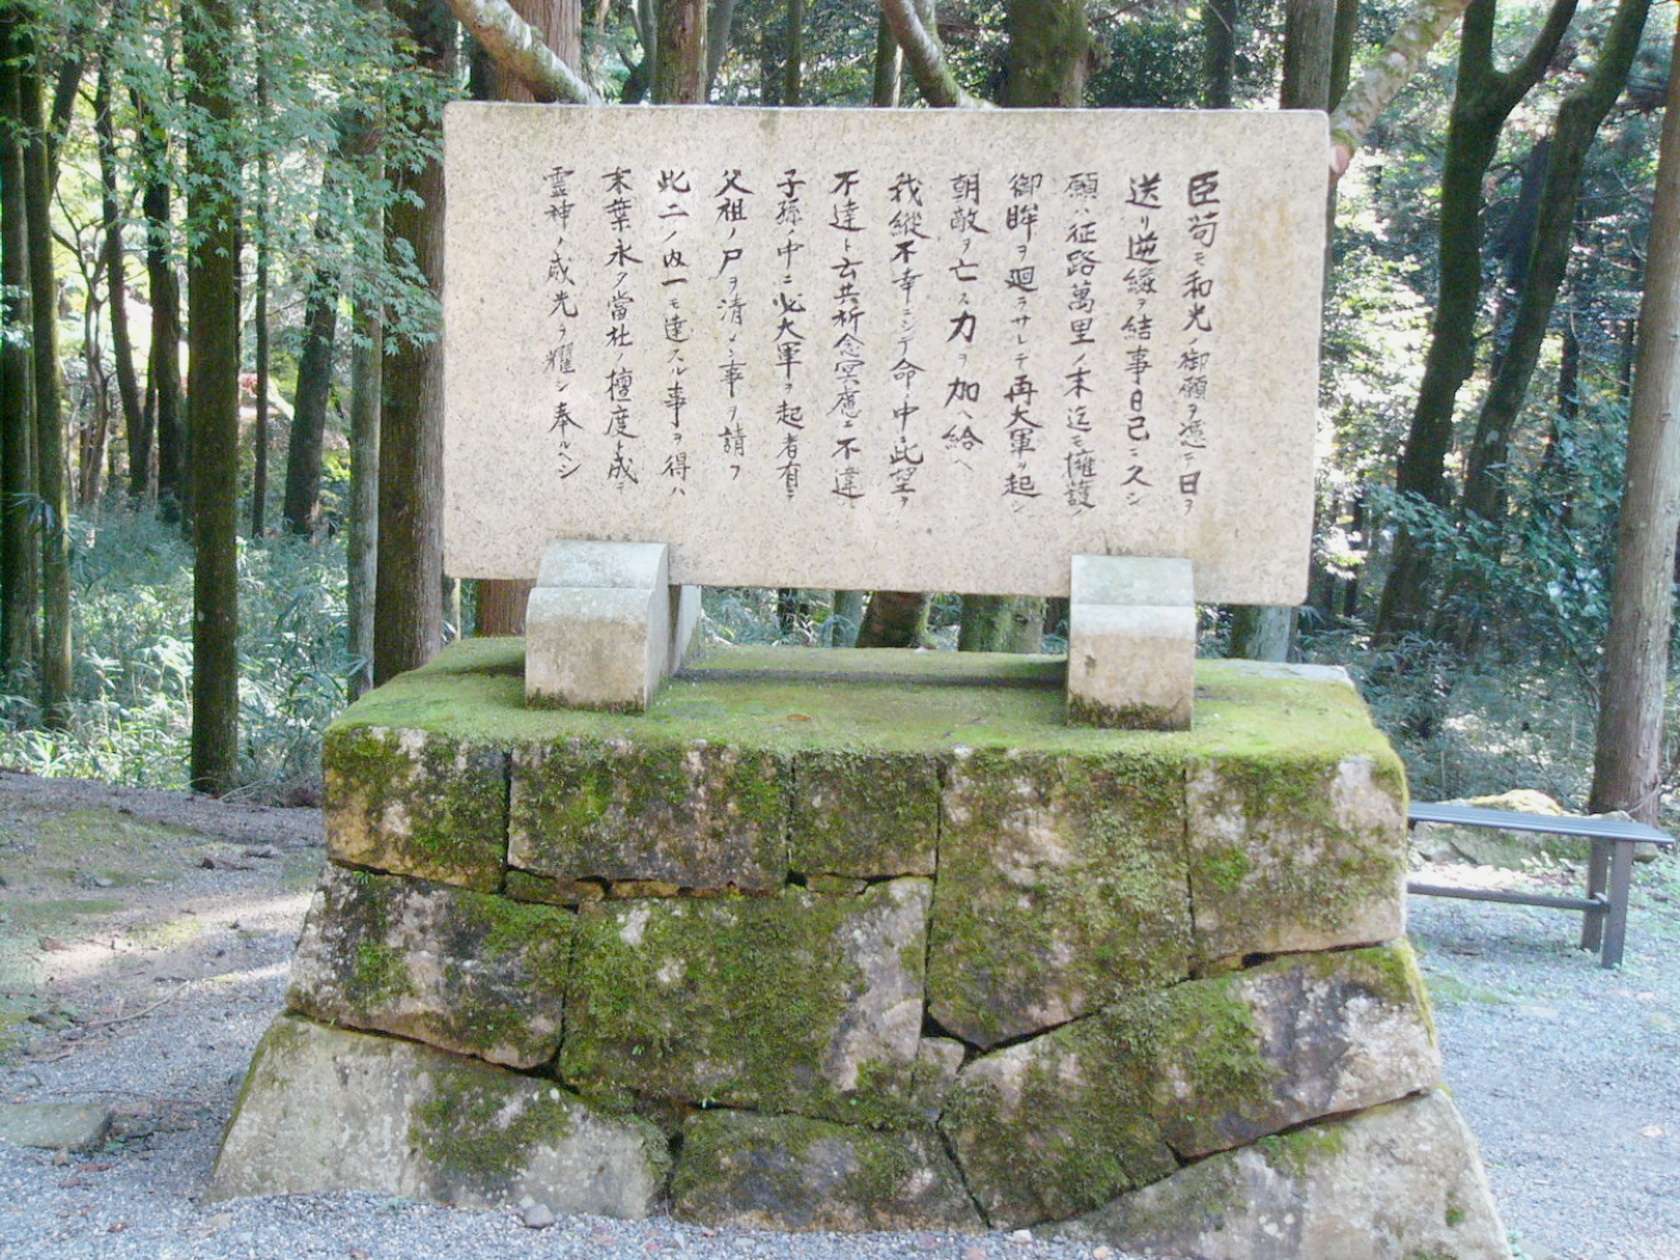 臣苟モ和光ノ御願ヲ憑テ日ヲ
送リ逆縁ヲ結事日已ニ久シ
願ハ征路萬里ノ末迄モ擁護ノ
御眸ヲ廻ラサレテ再大軍ヲ起シ
朝敵ヲ亡ス力ヲ加ヘ給ヘ
我縦不幸ニシテ命ノ中ニ此望ヲ
不達ト云共祈念冥慮ニ不違
子孫ノ中ニ必大軍ヲ起者有テ
父祖ノ尸ヲ清メン事ヲ請フ
此二ノ内一モ達スル事ヲ得ハ
末葉永ク當社ノ檀度ト成テ
霊神ノ威光ヲ耀シ奉ルヘシ